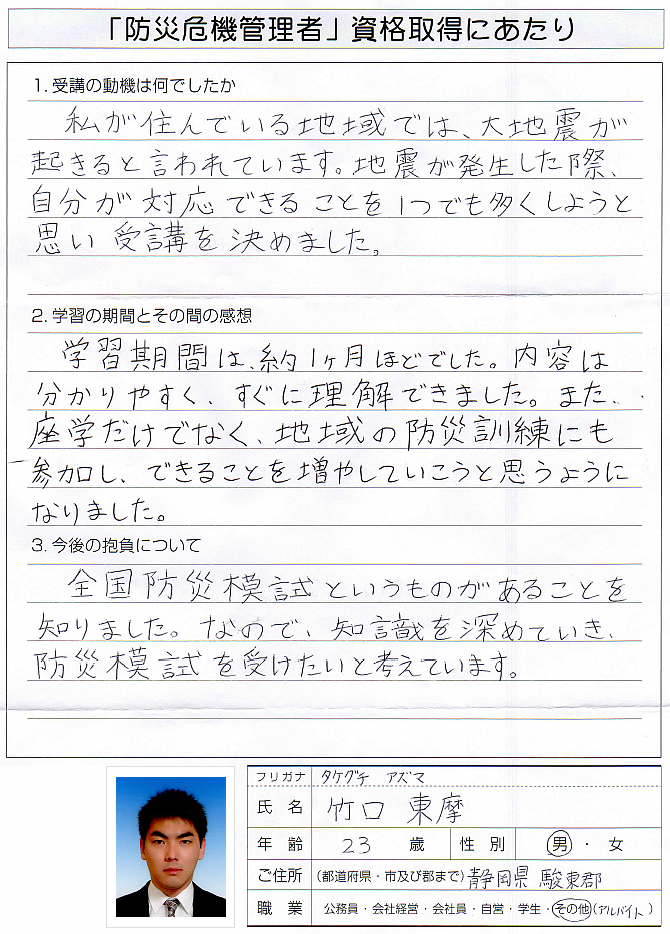 「防災危機管理者」資格取得にあたり
1. 受講の動機は何でしたか
私が住んでいる地域では、大地震が
起きると言われています。地震が発生した際、
自分が対応できることを1つでも多くしようと
思い受講を決めました。
2. 学習の期間とその間の感想
学習期間は、約1ヶ月ほどでした。内容は
分かりやすく、すぐに理解できました。また、
座学だけでなく、地域の防災訓練にも
参加し、できることを増やしていこうと思うように
なりました。
3. 今後の抱負について
全国防災模試というものがあることを
知りました。なので、知識を深めていき、
防災模試を受けたいと考えています。
フリガナ タケグチ アズマ
氏 名 竹口 東摩
年 齢 23 歳 性 別 男 ・ 女
ご住所 (都道府県・市及び郡まで) 静岡県 駿東郡
職 業 公務員・会社経営・会社員・自営・学生・その他(アルバイト)